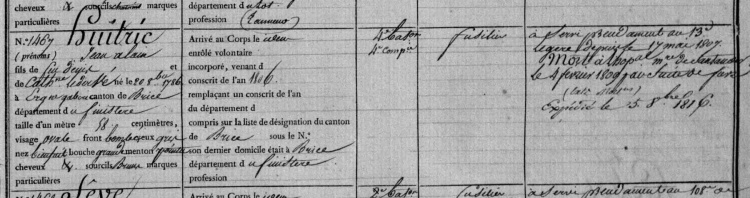 cheveux & sourcils marques
particulières
département d
profession (
N.° 1467 huitric
(prénoms) jean alain
fils de Guy Denis
et de Cath.ne né le 20 8bre 1786
à Ergué gaberic canton de Brice
département du finistère
taille d'un mètre 58 centimètres,
visage ovale front bombé yeux gris
nez bienfait bouche grande menton pointu
cheveux & sourcils Bruns marques
particulières
Arrivé au Corps le idem
enrôlé volontaire
incorporé, venant d
conscrit de l'an 1806
remplaçant un conscrit de l'an
du département d
compris sur la liste de désignation du canton
de Brice sous le N.°
son dernier domicile était à Brice
département du finistère
profession
4e Baton
4e Compie
fusilier
à servi pendament au 13e
légère depuis le 17 mai 1807.
Mort à l'hopal mre de
le 4 fevrier 1809 par suite de fievre
Expédié le 5 8bre 1816.
Arrivé au Corps le idem
2e Baton
fusilier
à servi pendament au 108e de